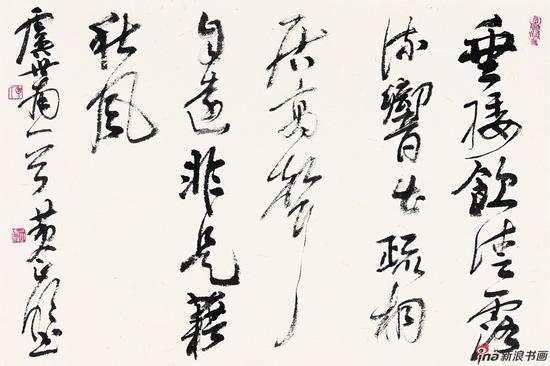 垂緌飲清露
流響出疏桐
居高聲
自遠非是藉
秋風
虞世南一首 黄書
sina新浪书画